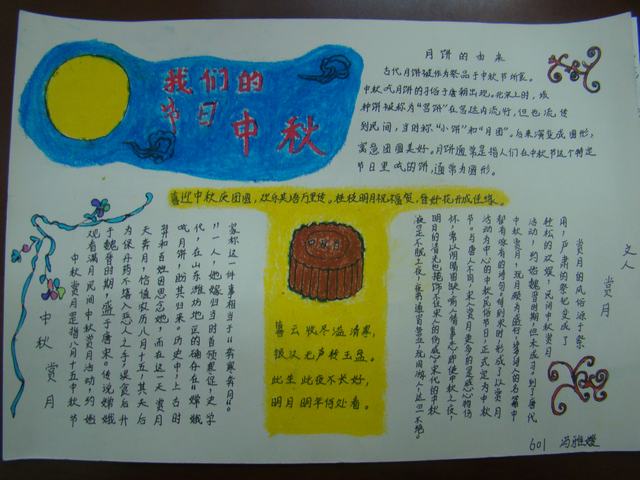 我们的
节日
中秋
月饼的由来
古代月饼被作为祭品于中秋节所食。
中秋吃月饼的习俗于唐朝出现。北宋之时，该
种饼被称为“宫饼”在宫廷内流行，但也流传
到民间，当时称“小饼”和“月团”。后来演变成圆形，
寓意团圆美好。月饼通常是指人们在中秋节这个特定
节日里吃的饼，通常为圆形。
喜迎中秋庆团圆，欢乐笑语万里传。桂枝明月祝福贺，
暮云收尽溢清寒，
银汉无声转玉盘。
此生此夜不长好，
明月明年何处看。
文人赏月
赏月的风俗源于祭
用，严肃的祭祀变成了
轻松的欢娱。民间中秋赏月
活动，约始魏晋时期，但未成习。到了唐代
中秋赏月、玩月颇为盛行，许多诗人的名篇中
都有咏月的诗句，待到宋时，形成了以赏月
活动为中心的中秋民俗节日，正式定为中秋
节。与唐人不同，宋人赏月更多的是感物伤
怀，常以阴晴圆缺，喻人情事态，即使中秋之夜，
明月的清光也掩饰不住宋人的伤感。宋代的中秋
夜是不眠之夜，夜市通宵营业，玩月游人，达旦不绝。
中秋赏月
中秋赏月是指八月十五中秋节
观看满月民间中秋赏月活动约始
于魏晋时期，盛于唐宋。传说嫦娥
为保丹药不落入恶人之手，误食后升
天奔月，恰值农历八月十五，其夫后
羿和百姓因思念她，而在这一天赏月
吃月饼，盼共归来。历史中，上古时
代，在山东潍坊地区的确存在“嫦娥
”一人，她嫁 史学
家称这一件事相当于“嫦娥奔月”。
601 冯雅媛